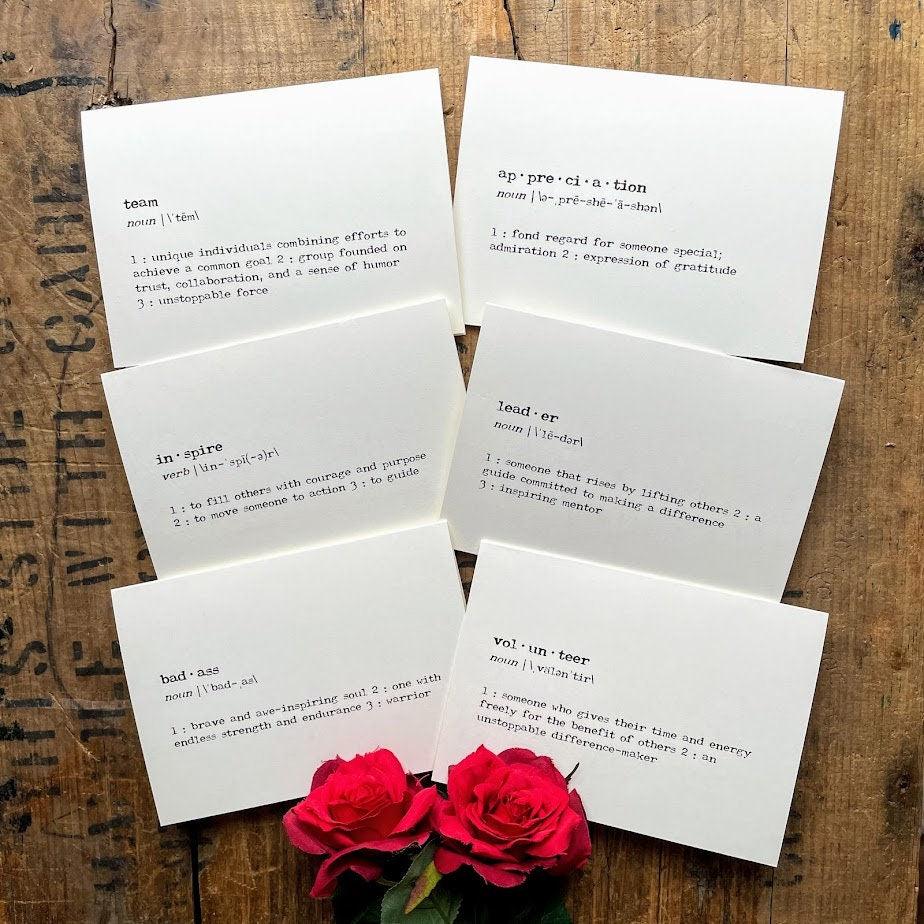 team
noun | \ˈtēm\
1 : unique individuals combining efforts to
achieve a common goal 2 : group founded on
trust, collaboration, and a sense of humor
3 : unstoppable force
ap·pre·ci·a·tion
noun | \ə-ˌprē-shē-ˈā-shən\
1 : fond regard for someone special;
admiration 2 : expression of gratitude
in·spire
verb | \in-ˈspī(-ə)r\
1 : to fill others with courage and purpose
2 : to move someone to action 3 : to guide
lead·er
noun | \ˈlē-dər\
1 : someone that rises by lifting others 2 : a
guide committed to making a difference
3 : inspiring mentor
bad·ass
noun | \ˈbad-ˌas\
1 : brave and awe-inspiring soul 2 : one with
endless strength and endurance 3 : warrior
vol·un·teer
noun | \ˌvälənˈtir\
1 : someone who gives their time and energy
freely for the benefit of others 2 : an
unstoppable difference-maker